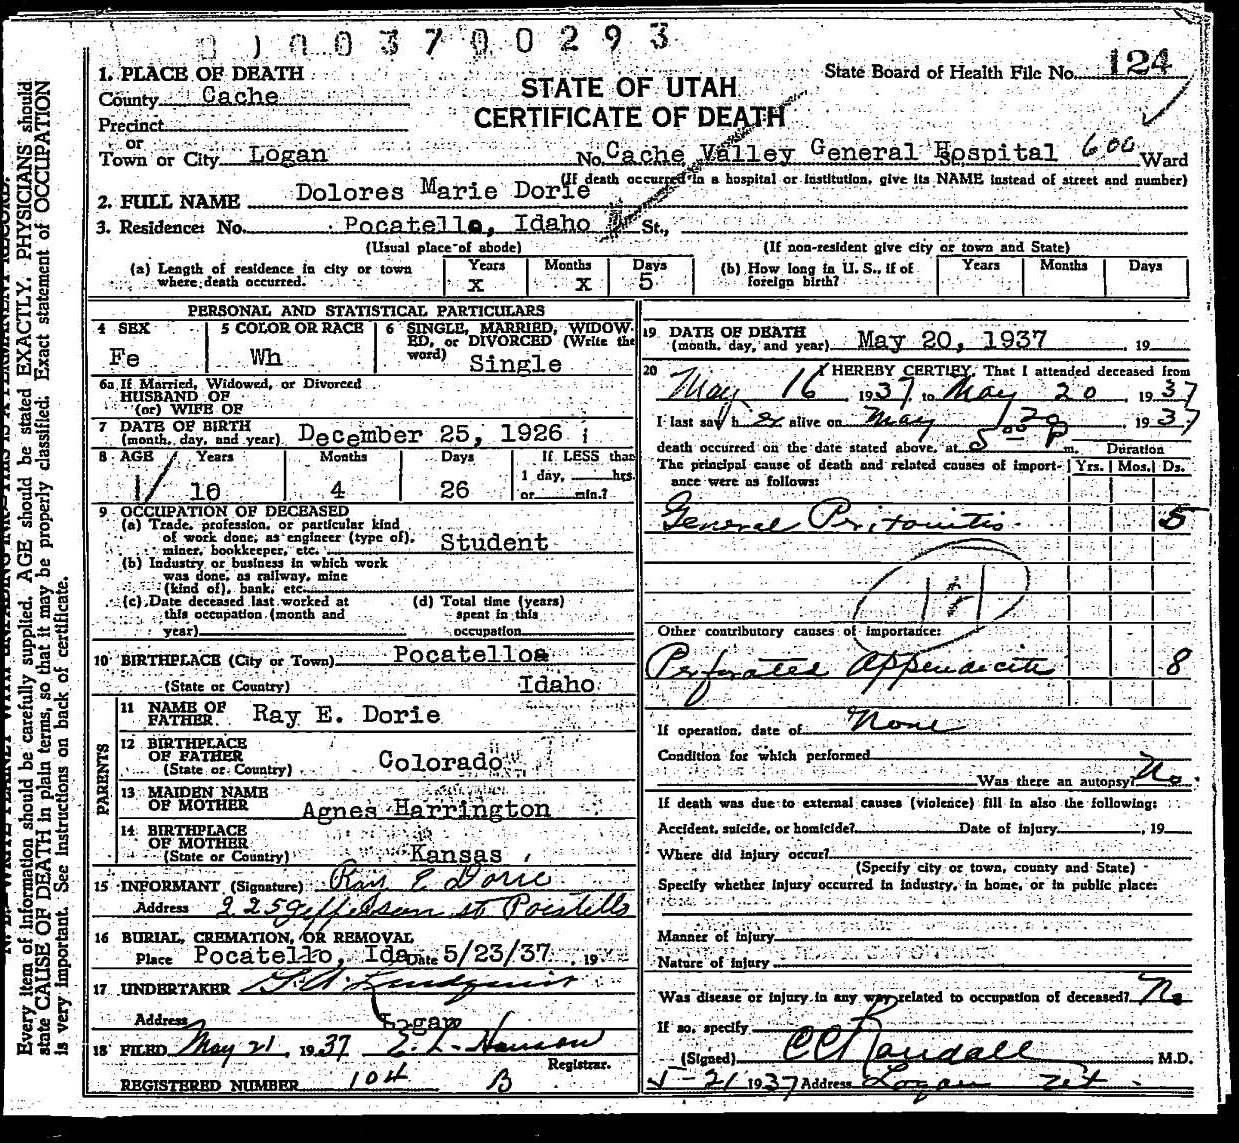 003700293
1. PLACE OF DEATH
County Cache
Precinct
or
Town or City Logan
STATE OF UTAH
CERTIFICATE OF DEATH
State Board of Health File No. 124
No. Cache Valley General Hospital St., 600 Ward
(If death occurred in a hospital or institution, give its NAME instead of street and number)
2. FULL NAME Dolores Marie Dorie
3. Residence: No. Pocatello, Idaho St.,
(Usual place of abode) (If non-resident give city or town and State)
(a) Length of residence in city or town where death occurred. Years x Months x Days 5
(b) How long in U. S., if of foreign birth? Years Months Days
PERSONAL AND STATISTICAL PARTICULARS
4 SEX Fe
5 COLOR OR RACE Wh
6 SINGLE, MARRIED, WIDOWED, or DIVORCED (Write the word) Single
6a If Married, Widowed, or Divorced
HUSBAND OF
(or) WIFE OF
7 DATE OF BIRTH
(month, day, and year) December 25, 1926
8 AGE Years 10 Months 4 Days 26
If LESS than 1 day, hrs. or min.?
9 OCCUPATION OF DECEASED
(a) Trade, profession, or particular kind of work done; as engineer (type of), miner, bookkeeper, etc. Student
(b) Industry or business in which work was done, as railway, mine (kind of), bank, etc.
(c) Date deceased last worked at this occupation (month and year)
(d) Total time (years) spent in this occupation
10 BIRTHPLACE (City or Town) Pocatello
(State or Country) Idaho
PARENTS
11 NAME OF FATHER Ray E. Dorie
12 BIRTHPLACE OF FATHER
(State or Country) Colorado
13 MAIDEN NAME OF MOTHER Agnes Harrington
14 BIRTHPLACE OF MOTHER
(State or Country) Kansas
15 INFORMANT (Signature) Ray E Dorie
Address 225 Jefferson st Pocatello
16 BURIAL, CREMATION, OR REMOVAL
Place Pocatello, Ida Date 5/23/37, 19
17 UNDERTAKER
Address Logan
18 FILED May 21, 1937 E. L. Hanson
Registrar.
REGISTERED NUMBER 104 B
19 DATE OF DEATH
(month, day, and year) May 20, 1937 19
20 I HEREBY CERTIFY, That I attended deceased from
May 16 1937, to May 20, 1937
I last saw her alive on May 20, 1937
death occurred on the date stated above, at 5 00 P m.
Duration
The principal cause of death and related causes of importance were as follows: Yrs. Mos. Ds.
General Peritonitis 5
121
Other contributory causes of importance:
Perforated Appendicitis 8
If operation, date of None
Condition for which performed
Was there an autopsy? No.
If death was due to external causes (violence) fill in also the following:
Accident, suicide, or homicide? Date of injury, 19
Where did injury occur?
(Specify city or town, county and State)
Specify whether injury occurred in industry, in home, or in public place:
Manner of injury
Nature of injury
Was disease or injury in any way related to occupation of deceased? No
If so, specify
(Signed) CC Randall M.D.
5-21 1937 Address Logan Ut.
Every item of information should be carefully supplied. AGE should be stated EXACTLY. PHYSICIANS should
state CAUSE OF DEATH in plain terms, so that it may be properly classified. Exact statement of OCCUPATION
is very important. See instructions on back of certificate.